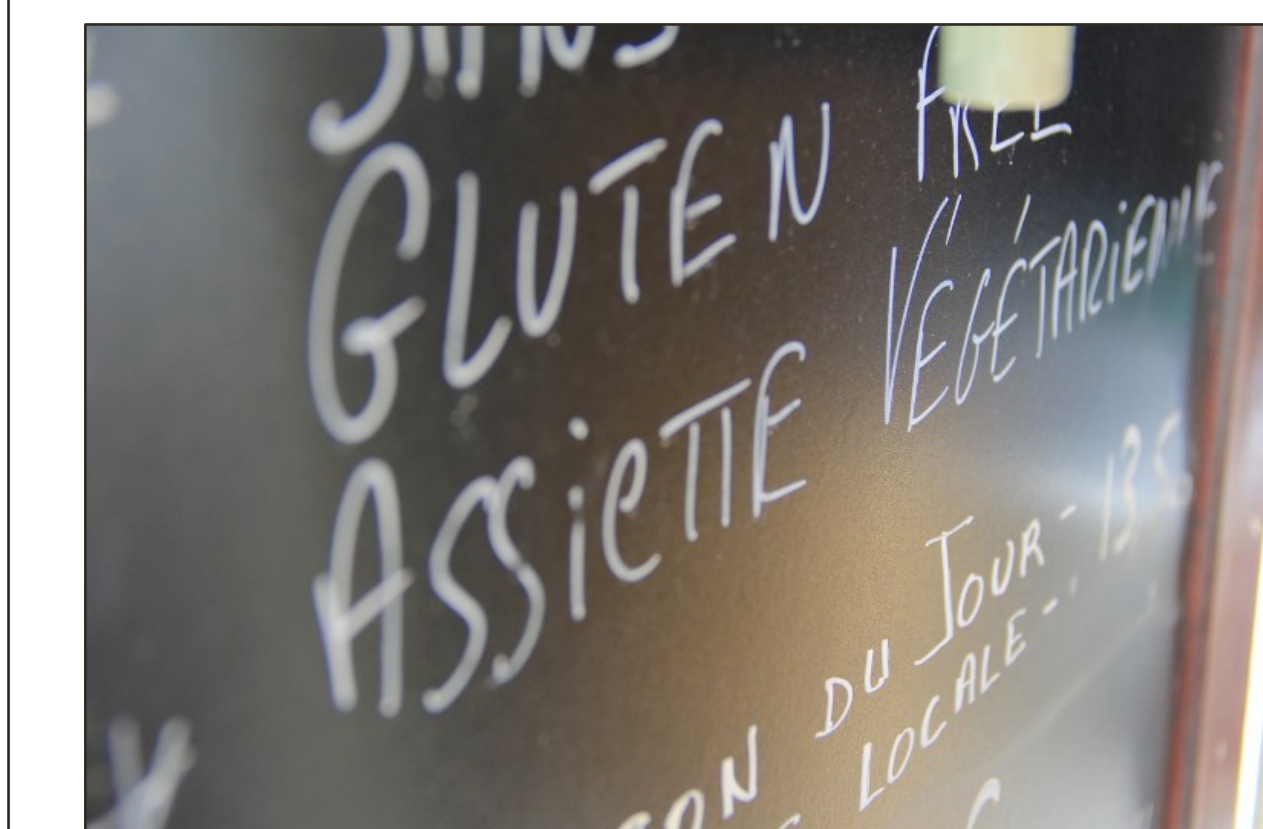 SANS
GLUTEN FREE
ASSiETTE VÉGÉTARiENNE
DU JOUR - 13,50
LOCALE -